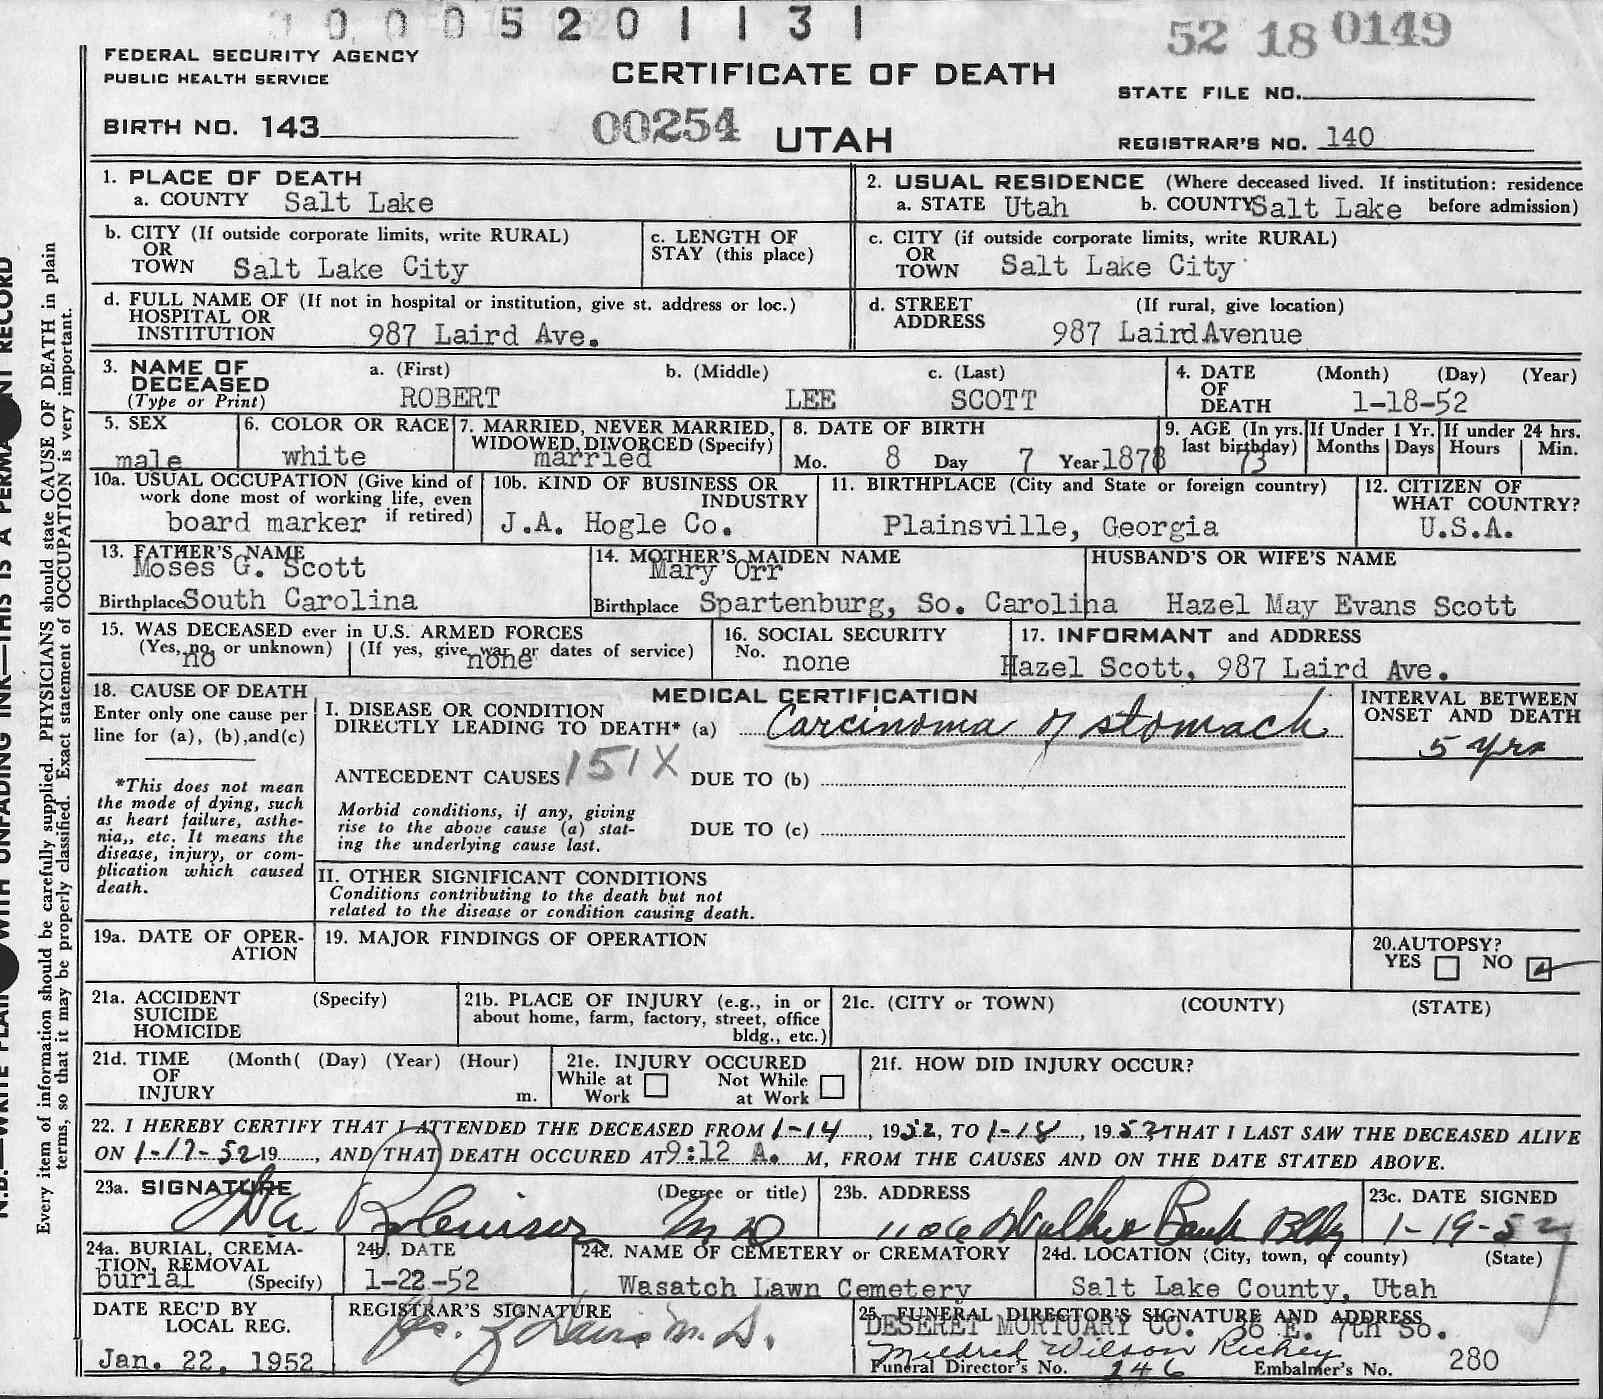 0 0 0 5 2 0 1 1 3 1
52 18 0149
FEDERAL SECURITY AGENCY
PUBLIC HEALTH SERVICE
CERTIFICATE OF DEATH
STATE FILE NO.
BIRTH NO. 143
00254
UTAH
REGISTRAR'S NO. 140
1. PLACE OF DEATH
a. COUNTY Salt Lake
2. USUAL RESIDENCE (Where deceased lived. If institution: residence
a. STATE Utah b. COUNTY Salt Lake before admission)
b. CITY (If outside corporate limits, write RURAL)
OR
TOWN Salt Lake City
c. LENGTH OF
STAY (this place)
c. CITY (if outside corporate limits, write RURAL)
OR
TOWN Salt Lake City
d. FULL NAME OF (If not in hospital or institution, give st. address or loc.)
HOSPITAL OR
INSTITUTION 987 Laird Ave.
d. STREET (If rural, give location)
ADDRESS 987 Laird Avenue
3. NAME OF DECEASED (Type or Print)
a. (First) b. (Middle) c. (Last)
ROBERT LEE SCOTT
4. DATE OF DEATH (Month) (Day) (Year)
1-18-52
5. SEX
male
6. COLOR OR RACE
white
7. MARRIED, NEVER MARRIED,
WIDOWED, DIVORCED (Specify)
married
8. DATE OF BIRTH
Mo. 8 Day 7 Year 1878
9. AGE (In yrs. last birthday) 73
If Under 1 Yr. Months Days
If under 24 hrs. Hours Min.
10a. USUAL OCCUPATION (Give kind of
work done most of working life, even
board marker if retired)
10b. KIND OF BUSINESS OR
INDUSTRY
J.A. Hogle Co.
11. BIRTHPLACE (City and State or foreign country)
Plainsville, Georgia
12. CITIZEN OF
WHAT COUNTRY?
U.S.A.
13. FATHER'S NAME
Moses G. Scott
Birthplace South Carolina
14. MOTHER'S MAIDEN NAME
Mary Orr
Birthplace Spartenburg, So. Carolina
HUSBAND'S OR WIFE'S NAME
Hazel May Evans Scott
15. WAS DECEASED ever in U.S. ARMED FORCES
(Yes, no, or unknown) (If yes, give war or dates of service)
no none
16. SOCIAL SECURITY
No. none
17. INFORMANT and ADDRESS
Hazel Scott, 987 Laird Ave.
18. CAUSE OF DEATH
Enter only one cause per
line for (a), (b),and(c)
*This does not mean
the mode of dying, such
as heart failure, asthe-
nia,, etc. It means the
disease, injury, or com-
plication which caused
death.
MEDICAL CERTIFICATION
I. DISEASE OR CONDITION
DIRECTLY LEADING TO DEATH* (a) Carcinoma of stomach
INTERVAL BETWEEN
ONSET AND DEATH
5 yrs
ANTECEDENT CAUSES 151X DUE TO (b)
Morbid conditions, if any, giving
rise to the above cause (a) stat-
ing the underlying cause last.
DUE TO (c)
II. OTHER SIGNIFICANT CONDITIONS
Conditions contributing to the death but not
related to the disease or condition causing death.
19a. DATE OF OPER-
ATION
19. MAJOR FINDINGS OF OPERATION
20. AUTOPSY?
YES NO
21a. ACCIDENT (Specify)
SUICIDE
HOMICIDE
21b. PLACE OF INJURY (e.g., in or
about home, farm, factory, street, office
bldg., etc.)
21c. (CITY or TOWN) (COUNTY) (STATE)
21d. TIME (Month( (Day) (Year) (Hour)
OF
INJURY m.
21e. INJURY OCCURED
While at Work Not While at Work
21f. HOW DID INJURY OCCUR?
22. I HEREBY CERTIFY THAT I ATTENDED THE DECEASED FROM 1-14, 1952, TO 1-18, 1952 THAT I LAST SAW THE DECEASED ALIVE
ON 1-17-52 19, AND THAT DEATH OCCURED AT 9:12 A. M, FROM THE CAUSES AND ON THE DATE STATED ABOVE.
23a. SIGNATURE (Degree or title)
MD
23b. ADDRESS
1106 Walker Bank Bldg
23c. DATE SIGNED
1-19-52
24a. BURIAL, CREMA-
TION, REMOVAL
burial (Specify)
24b. DATE
1-22-52
24c. NAME OF CEMETERY or CREMATORY
Wasatch Lawn Cemetery
24d. LOCATION (City, town, of county) (State)
Salt Lake County, Utah
DATE REC'D BY
LOCAL REG.
Jan. 22, 1952
REGISTRAR'S SIGNATURE
Davis M. D.
25. FUNERAL DIRECTOR'S SIGNATURE AND ADDRESS
DESERET MORTUARY CO. 36 E. 7th So.
Mildred Wilson Richey
Funeral Director's No. 246 Embalmer's No. 280
Every item of information should be carefully supplied. PHYSICIANS should state CAUSE OF DEATH in plain
terms, so that it may be properly classified. Exact statement of OCCUPATION is very important.
WITH UNFADING INK—THIS IS A RECORD